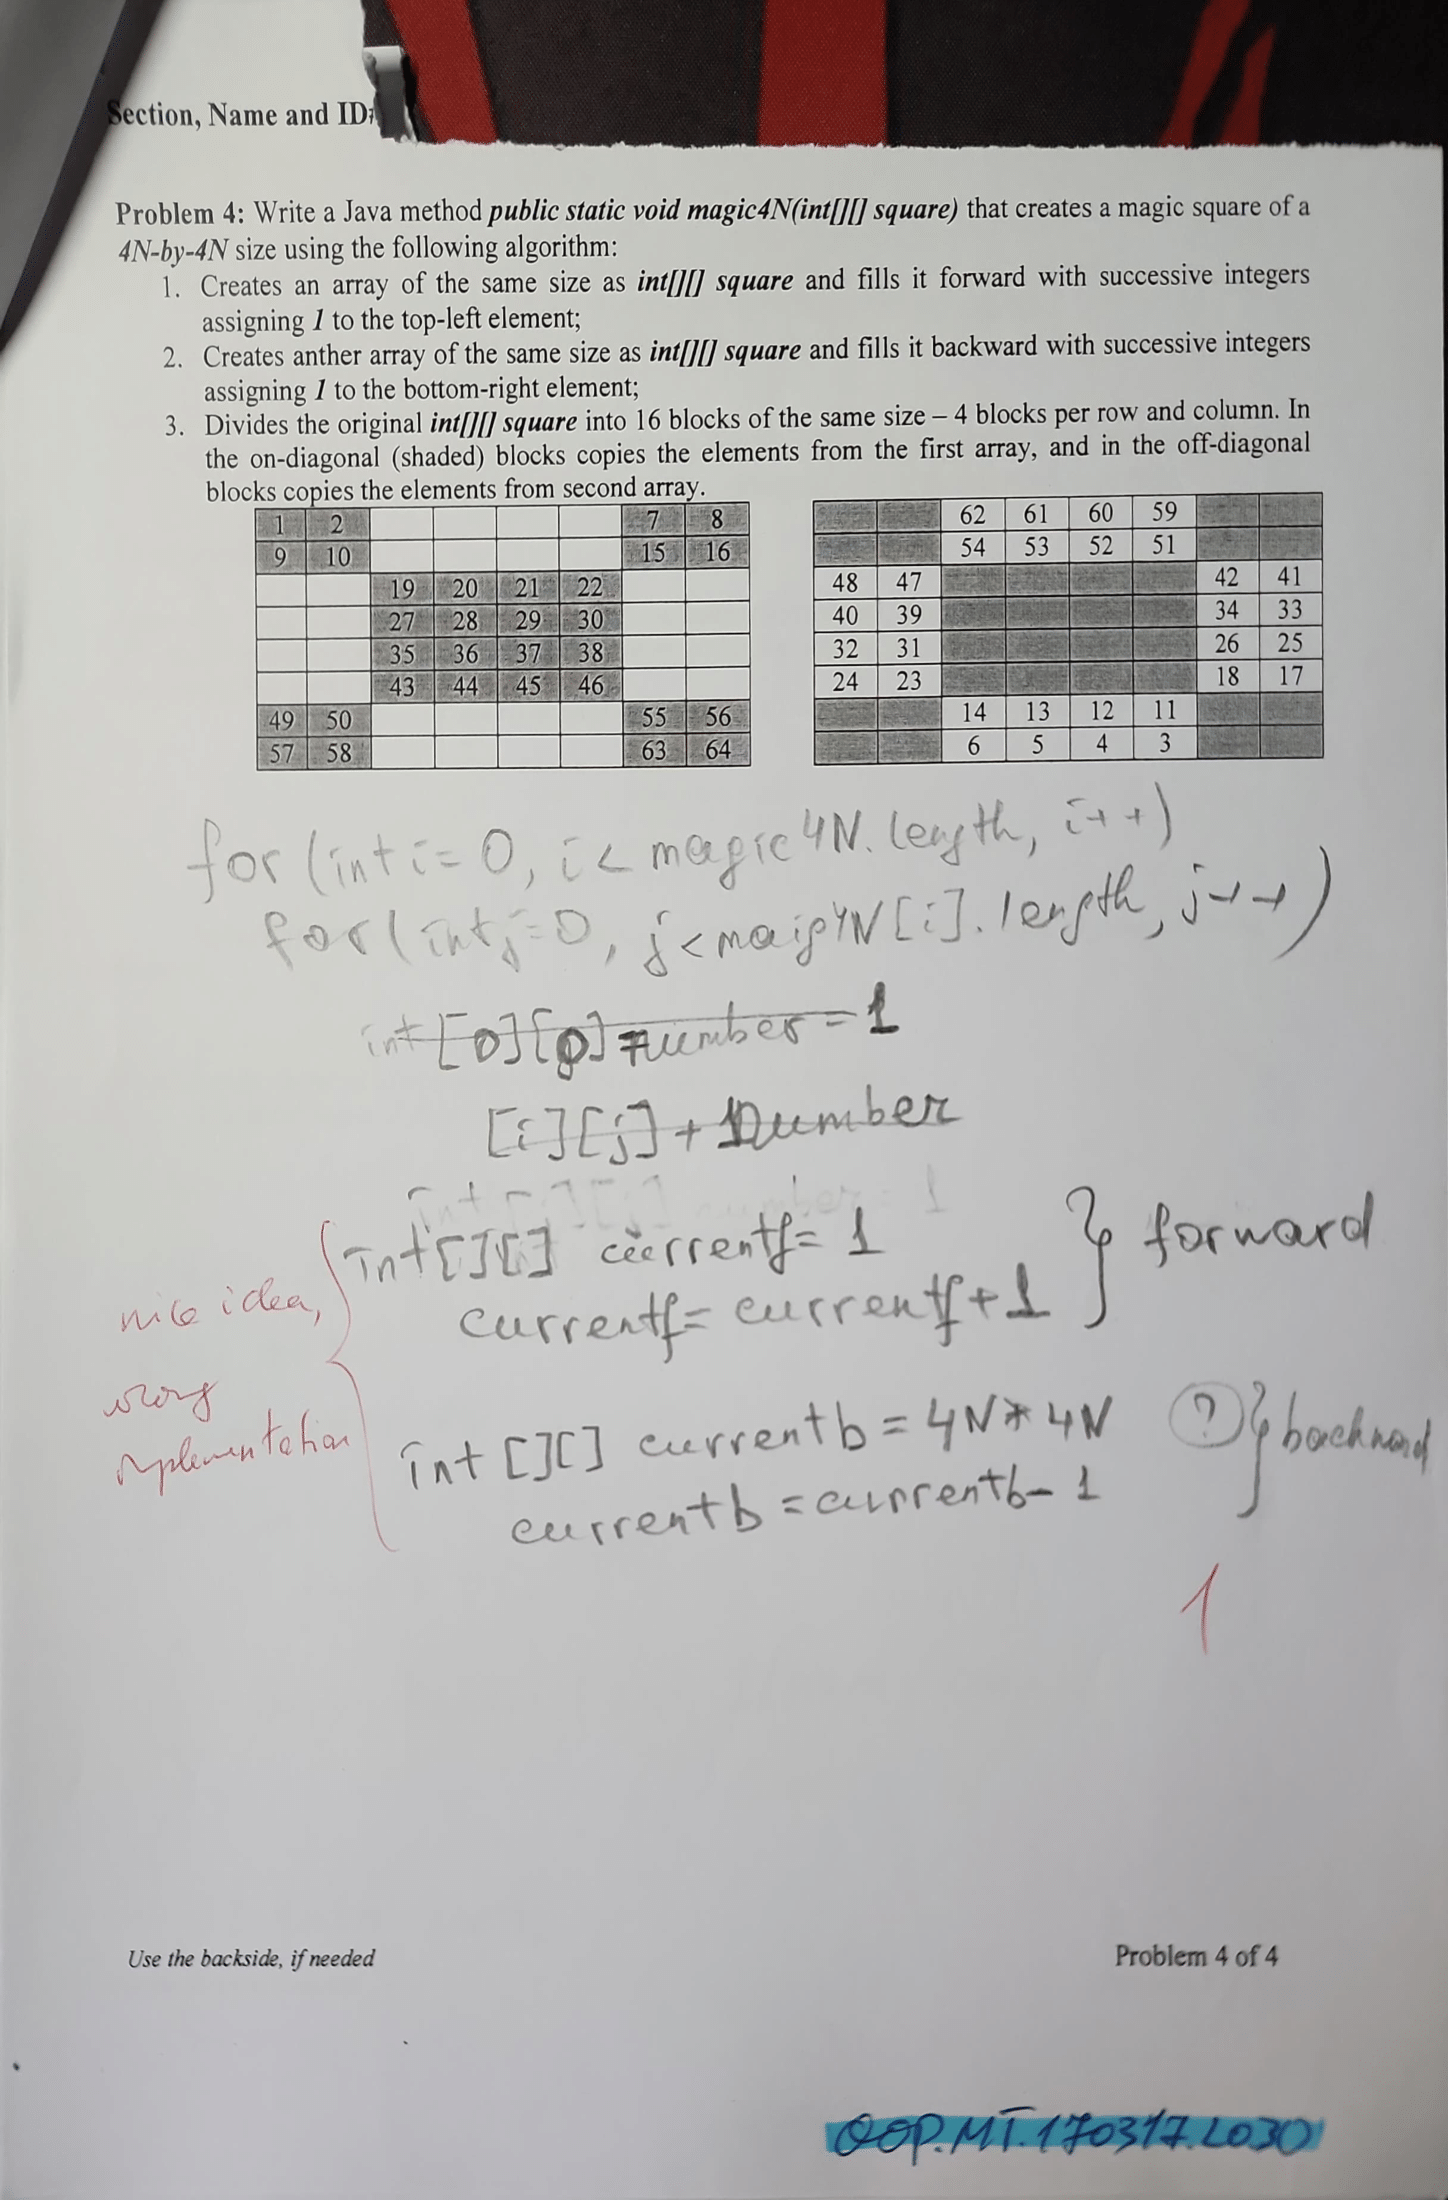 Section, Name and ID:
Problem 4: Write a Java method public static void magic4N(int[][] square) that creates a magic square of a
4N-by-4N size using the following algorithm:
1. Creates an array of the same size as int[][] square and fills it forward with successive integers
assigning 1 to the top-left element;
2. Creates anther array of the same size as int[][] square and fills it backward with successive integers
assigning 1 to the bottom-right element;
3. Divides the original int[][] square into 16 blocks of the same size – 4 blocks per row and column. In
the on-diagonal (shaded) blocks copies the elements from the first array, and in the off-diagonal
blocks copies the elements from second array.
1 2 7 8
9 10 15 16
19 20 21 22
27 28 29 30
35 36 37 38
43 44 45 46
49 50 55 56
57 58 63 64
62 61 60 59
54 53 52 51
48 47 42 41
40 39 34 33
32 31 26 25
24 23 18 17
14 13 12 11
6 5 4 3
for (int i = 0, i < magic4N. length, i++)
for (int j = 0, j < maig4N [i]. length, j++)
int [0][0] number = 1
[i][j] + number
int [][] currentf = 1 } forward
currentf = currentf + 1
nice idea,
wrong
implementation
int [][] currentb = 4N * 4N (?) } backward
currentb = currentb - 1
1
Use the backside, if needed
Problem 4 of 4
OOP.MT.170317.L030